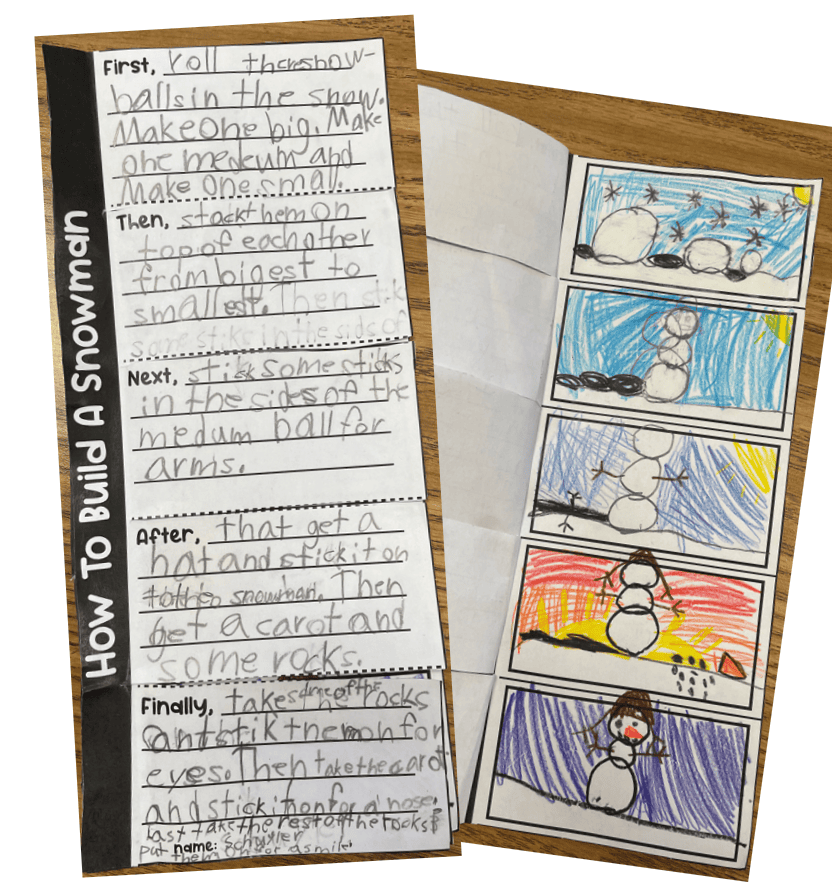 How To Build A Snowman
First, roll thre snow-
balls in the snow.
Make one big. Make
one medeum and
Make one small.
Then, stack them on
top of each other
from bigest to
smallest. Then stik
some stiks in the sides of
Next, stick some sticks
in the sides of the
medum ball for
arms.
After, that get a
hat and stick it on
snowman. Then
get a carot and
some rocks.
Finally, take some of the rocks
ant stik themon for
eyes. Then take the carot
and stick it on for a nose.
last take the rest of the rocks &
put name: Schyler
them on for a smile.